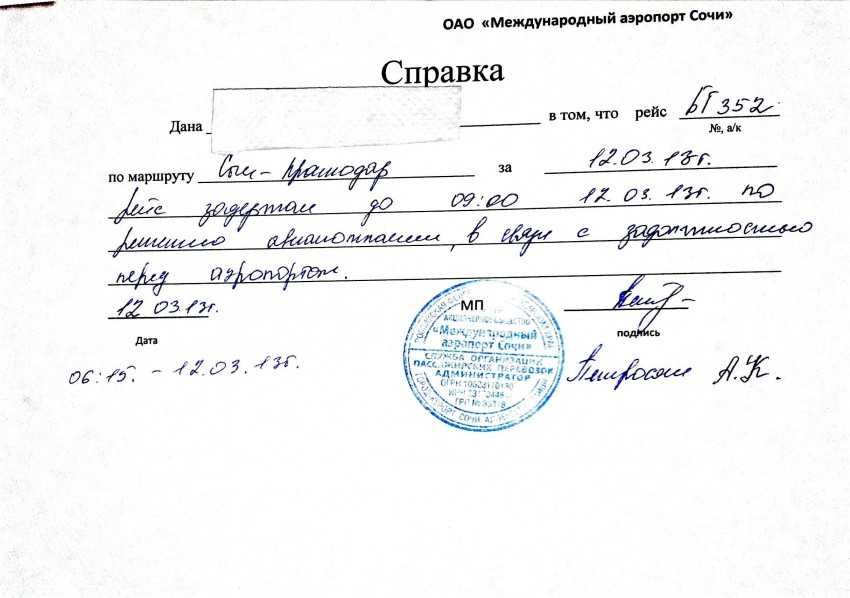 ОАО «Международный аэропорт Сочи»
Справка
Дана в том, что рейс БГ 352
№, а/к
по маршруту Сочи - Краснодар за 12.03.13г.
рейс задержан до 09:00 12.03.13г. по
решению авиакомпании, в связи с задолженностью
перед аэропортом.
12.03.13г. МП
Дата подпись
06:15. - 12.03.13г. Петросян А.К.
АКЦИОНЕРНОЕ ОБЩЕСТВО
«Международный
аэропорт Сочи»
СЛУЖБА ОРГАНИЗАЦИИ
ПАССАЖИРСКИХ ПЕРЕВОЗОК
АДМИНИСТРАТОР